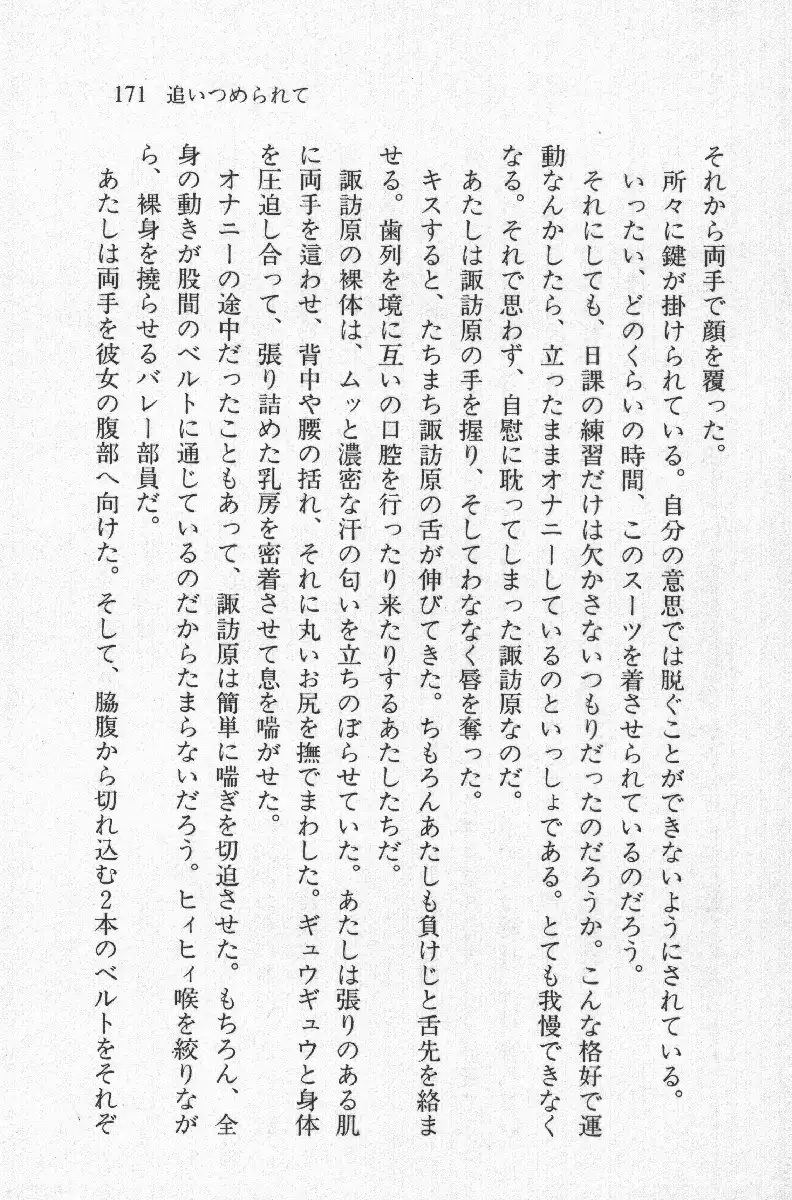 171 追いつめられて
それから両手で顔を覆った。
所々に鍵が掛けられている。自分の意思では脱ぐことができないようにされている。
いったい、どのくらいの時間、このスーツを着させられているのだろう。
それにしても、日課の練習だけは欠かさないつもりだったのだろうか。こんな格好で運
動なんかしたら、立ったままオナニーしているのといっしょである。とても我慢できなく
なる。それで思わず、自慰に耽ってしまった諏訪原なのだ。
あたしは諏訪原の手を握り、そしてわななく唇を奪った。
キスすると、たちまち諏訪原の舌が伸びてきた。ちもろんあたしも負けじと舌先を絡ま
せる。歯列を境に互いの口腔を行ったり来たりするあたしたちだ。
諏訪原の裸体は、ムッと濃密な汗の匂いを立ちのぼらせていた。あたしは張りのある肌
に両手を這わせ、背中や腰の括れ、それに丸いお尻を撫でまわした。ギュウギュウと身体
を圧迫し合って、張り詰めた乳房を密着させて息を喘がせた。
オナニーの途中だったこともあって、諏訪原は簡単に喘ぎを切迫させた。もちろん、全
身の動きが股間のベルトに通じているのだからたまらないだろう。ヒィヒィ喉を絞りなが
ら、裸身を撓らせるバレー部員だ。
あたしは両手を彼女の腹部へ向けた。そして、脇腹から切れ込む２本のベルトをそれぞ